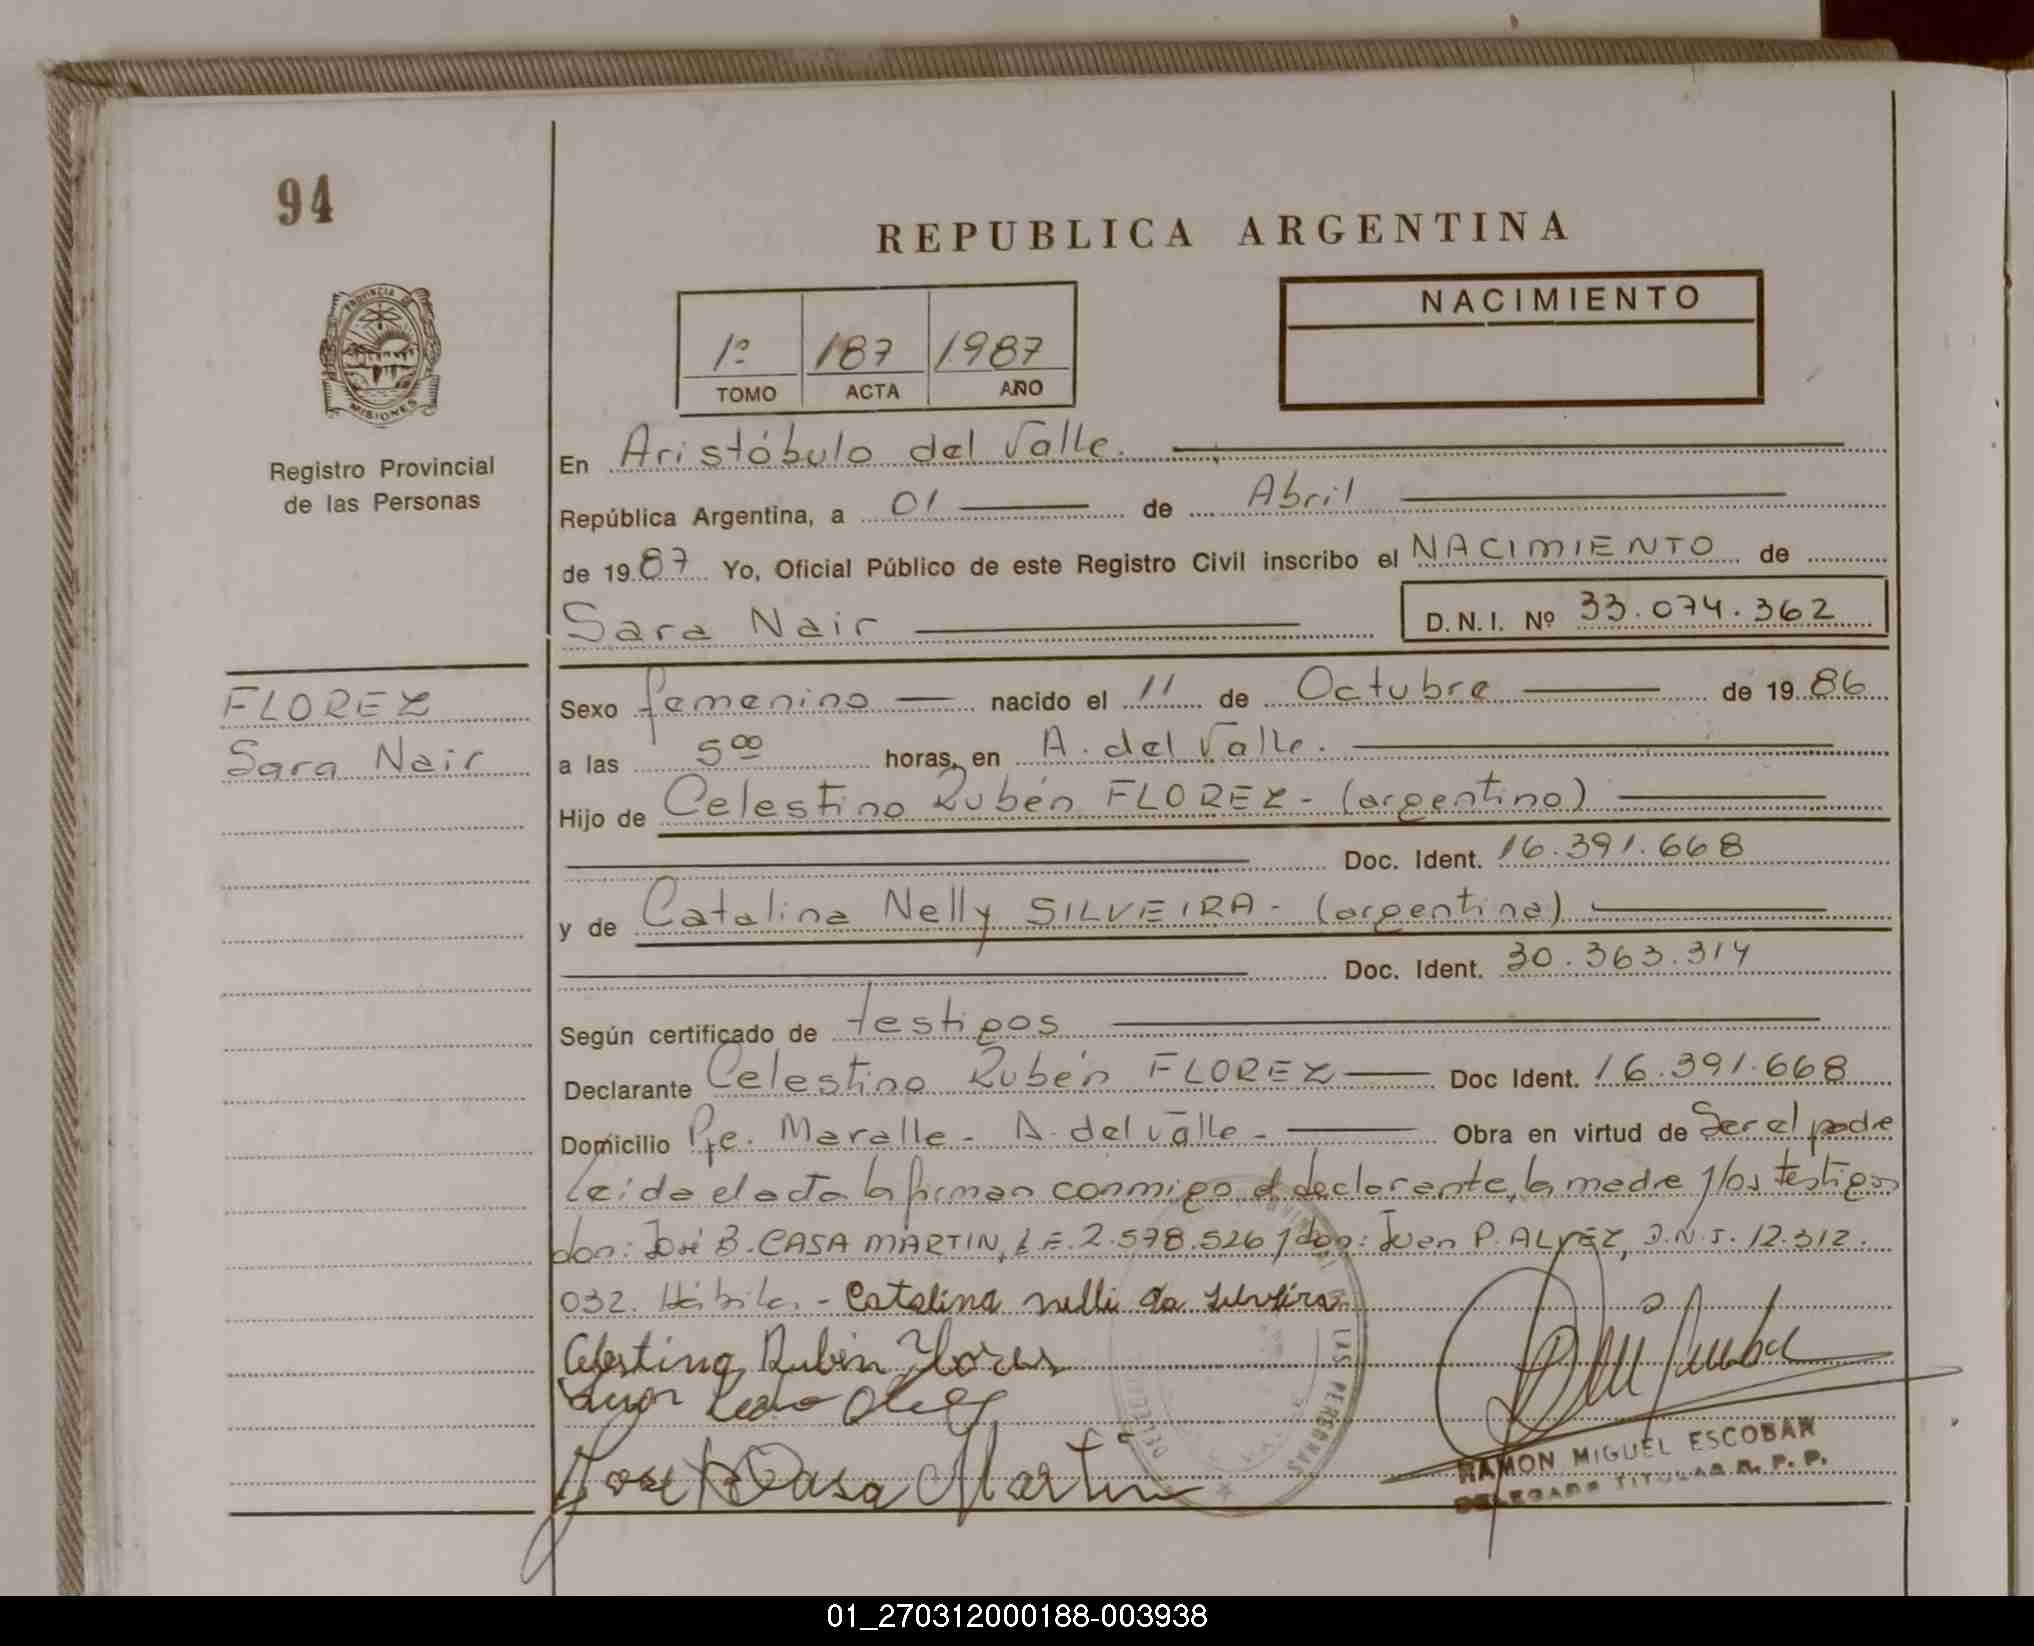 94
REPUBLICA ARGENTINA
PROVINCIA DE
MISIONES
Registro Provincial
de las Personas
1º 187 1987
TOMO ACTA AÑO
NACIMIENTO
En Aristóbulo del Valle.
República Argentina, a 01 de Abril
de 1987 Yo, Oficial Público de este Registro Civil inscribo el NACIMIENTO de
Sara Nair D.N.I. Nº 33.074.362
FLOREZ
Sara Nair
Sexo femenino nacido el 11 de Octubre de 1986
a las 5 00 horas, en A. del Valle.
Hijo de Celestino Rubén FLOREZ - (argentino)
Doc. Ident. 16.391.668
y de Catalina Nelly SILVEIRA - (argentina)
Doc. Ident. 30.363.314
Según certificado de testigos
Declarante Celestino Rubén FLOREZ Doc Ident. 16.391.668
Domicilio Pje. Maralle - A. del Valle - Obra en virtud de Ser el padre
Leida el acta la firman conmigo el declarante, la madre y los testigos
don: José B. CASA MARTIN, L.E. 2.578.526 y don: Juan P. ALVEZ, D.N.I. 12.312.
032. Hábiles. - Catalina nelli da silveira
Celestino Rubén Flores
Jose B Casa Martin
LAS PERSONAS
RAMON MIGUEL ESCOBAR
DELEGADO TITULAR R. P. P.
01_270312000188-003938